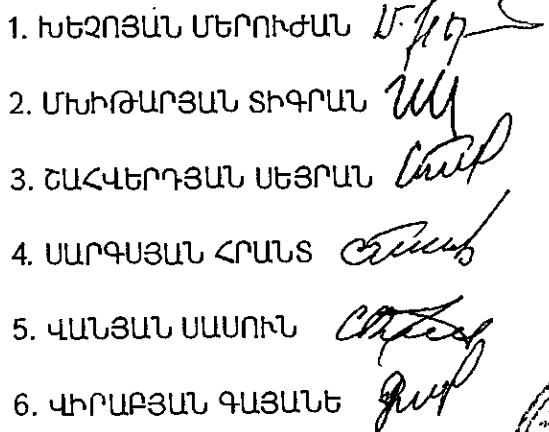 1. ԽԵՉՈՅԱՆ ՄԵՐՈՒԺԱՆ
2. ՄԽԻԹԱՐՅԱՆ ՏԻԳՐԱՆ
3. ՇԱՀՎԵՐԴՅԱՆ ՍԵՅՐԱՆ
4. ՍԱՐԳՍՅԱՆ ՀՐԱՆՏ
5. ՎԱՆՅԱՆ ՍԱՍՈՒՆ
6. ՎԻՐԱԲՅԱՆ ԳԱՅԱՆԵ